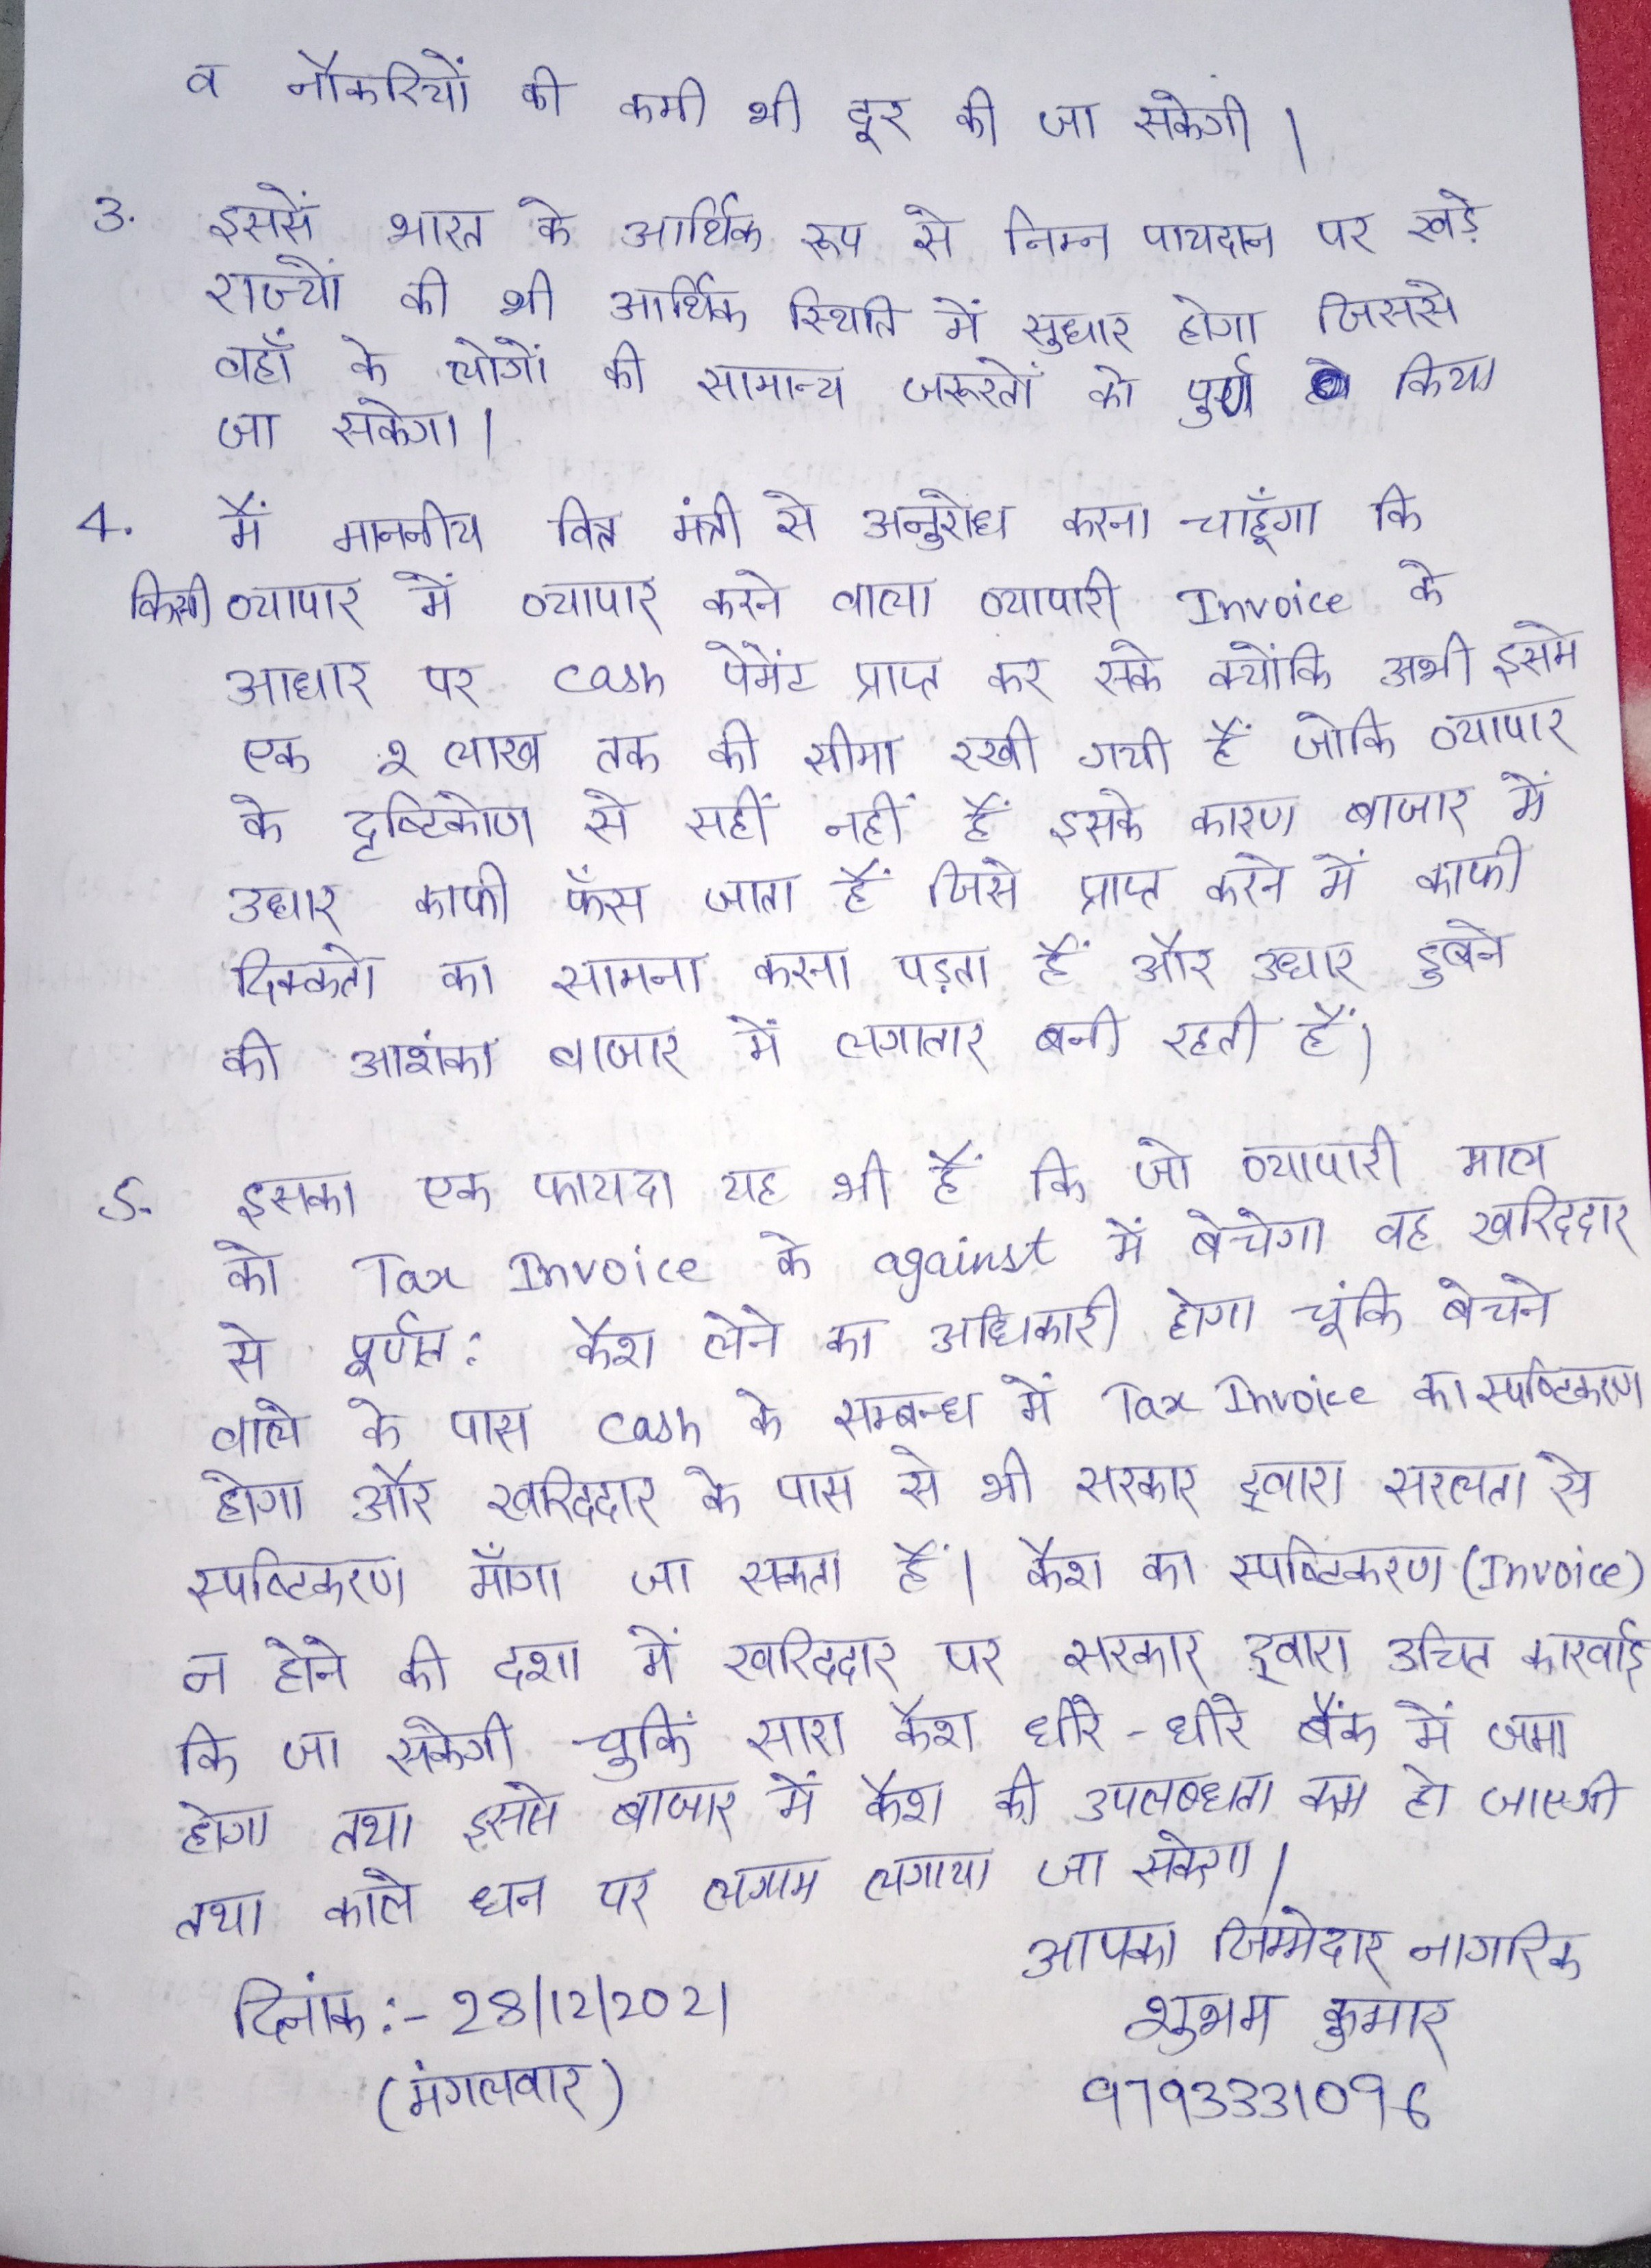 व नौकरियों की कमी भी दूर की जा सकेगी।
3. इससें भारत के आर्थिक रूप से निम्न पायदान पर खड़े
राज्यों की भी आर्थिक स्थिति में सुधार होगा जिससे
वहाँ के लोगों की सामान्य जरूरतों को पुर्ण किया
जा सकेगा।
4. मैं माननीय वित्त मंत्री से अनुरोध करना चाहूँगा कि
किसी व्यापार में व्यापार करने वाला व्यापारी Invoice के
आधार पर Cash पेमेंट प्राप्त कर सके क्योंकि अभी इसमे
एक २ लाख तक की सीमा रखी गयी हैं जोकि व्यापार
के दृष्टिकोण से सहीं नहीं हैं इसके कारण बाजार में
उधार काफी फँस जाता हैं जिसे प्राप्त करने में काफी
दिक्कतो का सामना करना पड़ता हैं और उधार डुबने
की आशंका बाजार में लगातार बनी रहती हैं।
5. इसका एक फायदा यह भी हैं कि जो व्यापारी माल
को Tax Invoice के against में बेचेगा वह खरिददार
से पूर्णत: कैश लेने का अधिकारी होगा चूंकि बेचने
वाले के पास Cash के सम्बन्ध में Tax Invoice का स्पष्टिकरण
होगा और खरिददार के पास से भी सरकार द्वारा सरलता से
स्पष्टिकरण माँगा जा सकता हैं। कैश का स्पष्टिकरण (Invoice)
न होने की दशा में खरिददार पर सरकार द्वारा उचित कारवाई
कि जा सकेगी चुकिं सारा कैश धीरे-धीरे बैंक में जमा
होगा तथा इससे बाजार में कैश की उपलब्धता कम हो जाएगी
तथा काले धन पर लगाम लगाया जा सकेगा।
आपका जिम्मेदार नागरिक
दिनांक:- 28/12/2021 शुभम कुमार
(मंगलवार) 9793331096